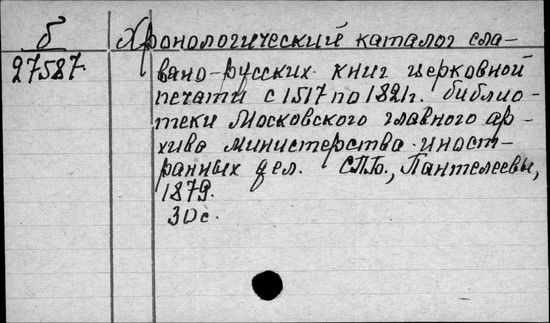 б
27587
Хронологический каталог сла-
вяно-русских книг церковной
печати с 1517 по 1821г. библио-
теки Московского главного ар-
хива министерства иност-
ранных дел. СПб., Пантелеевы,
1879.
30с.